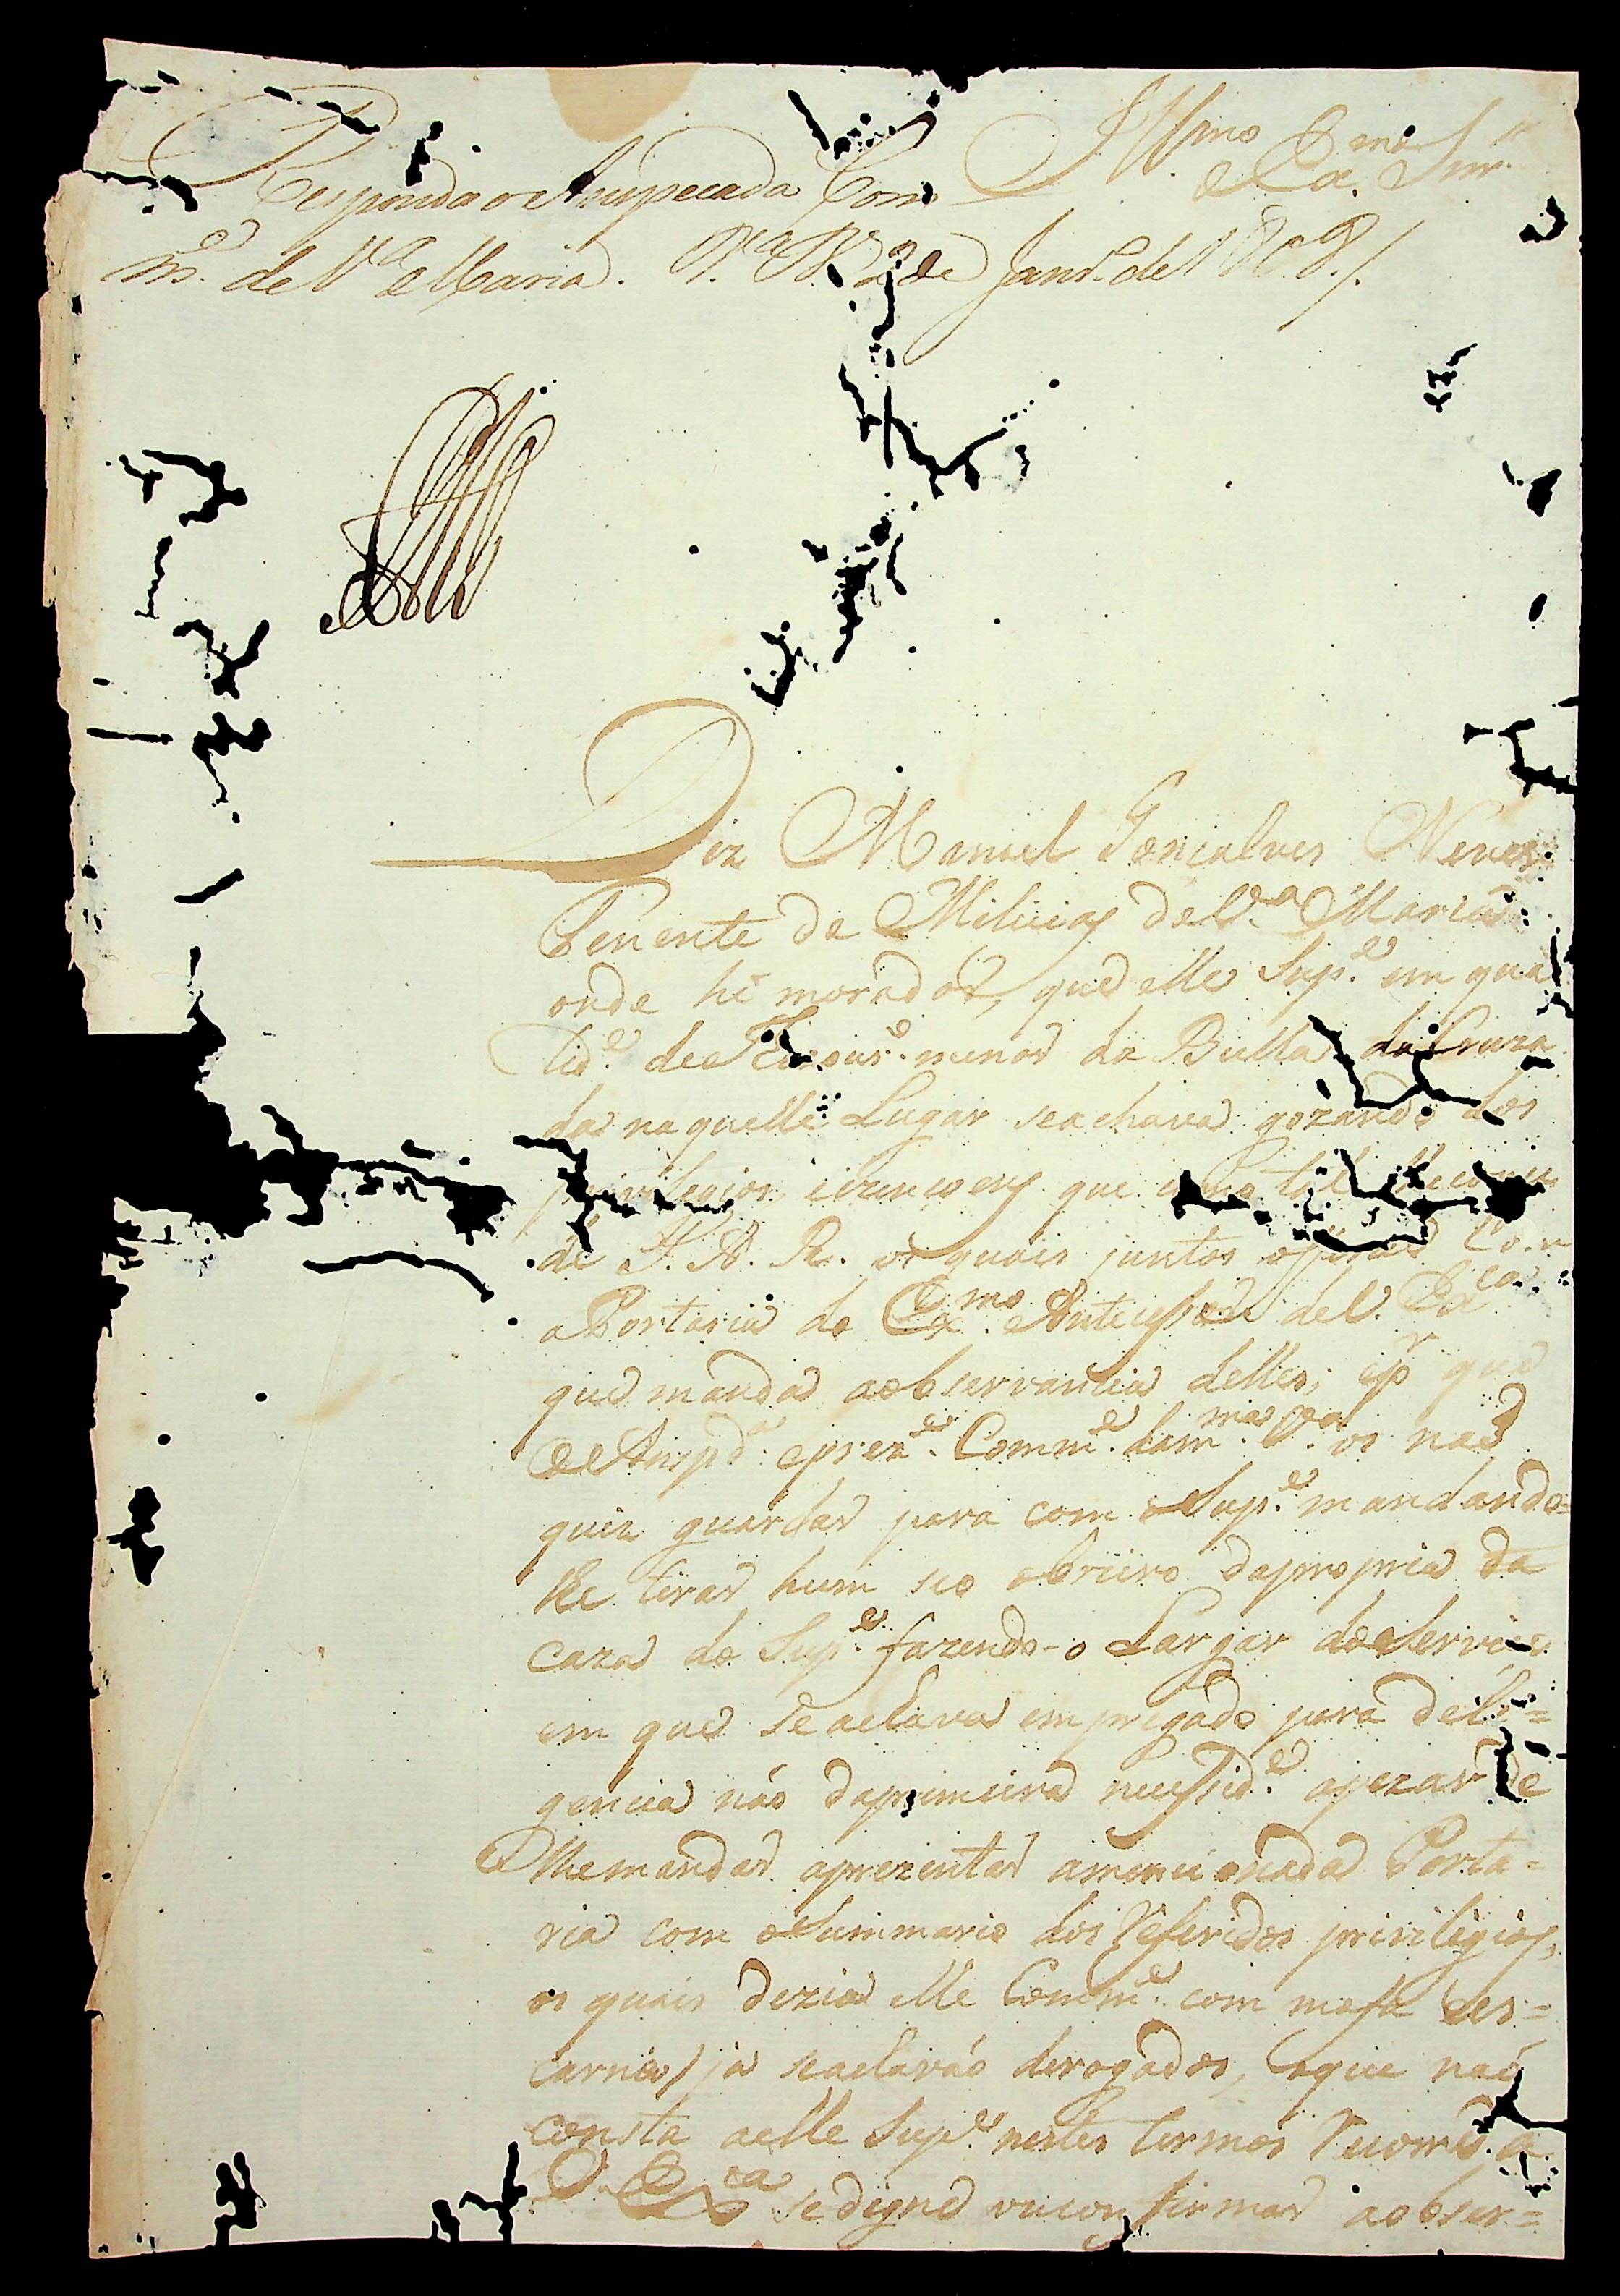 Ill.mo e Ex.mo Snr.
Responda o Anspecada Com
m.e de V.a Maria. V.a B.a 2 de Janr.o de 1809 /.
Diz Manuel Gonçalves Neves
Tenente de Milicias de V.a Maria
onde hé morador, que elle Sup.e em qua
lid.e de Tizour.o menor da Bulla da Cruza
da naquelle Lugar se achava gozando dos
privilegios izencoens que como tal
de S. A. R. os quais juntos oferece Com
a Portaria do Ex.mo Antecessor de V. Ex.ca
que manda a observancia delles; e p.r que
o Ansp.da e prez.e Comm.e da m.ma V.a os naõ
quiz guardar para com o Sup.e mandando=
lhe tirar hum seo obreiro da propria da
caza do Sup.e fazendo-o Largar do Serviço
em que se achava empregado para deli=
gencia não da primeira necessid.e apezar de
lhe mandar aprezentar a mencionada Porta=
ria com o Summario dos referidos privilegios,
os quais dezia elle Comm.e com mofa e es=
carnio / ja se achavaõ derogados, o que naõ
consta a elle Sup.e nestes termos recorre a
V. Ex.ca se digne reconfirmar a obser=